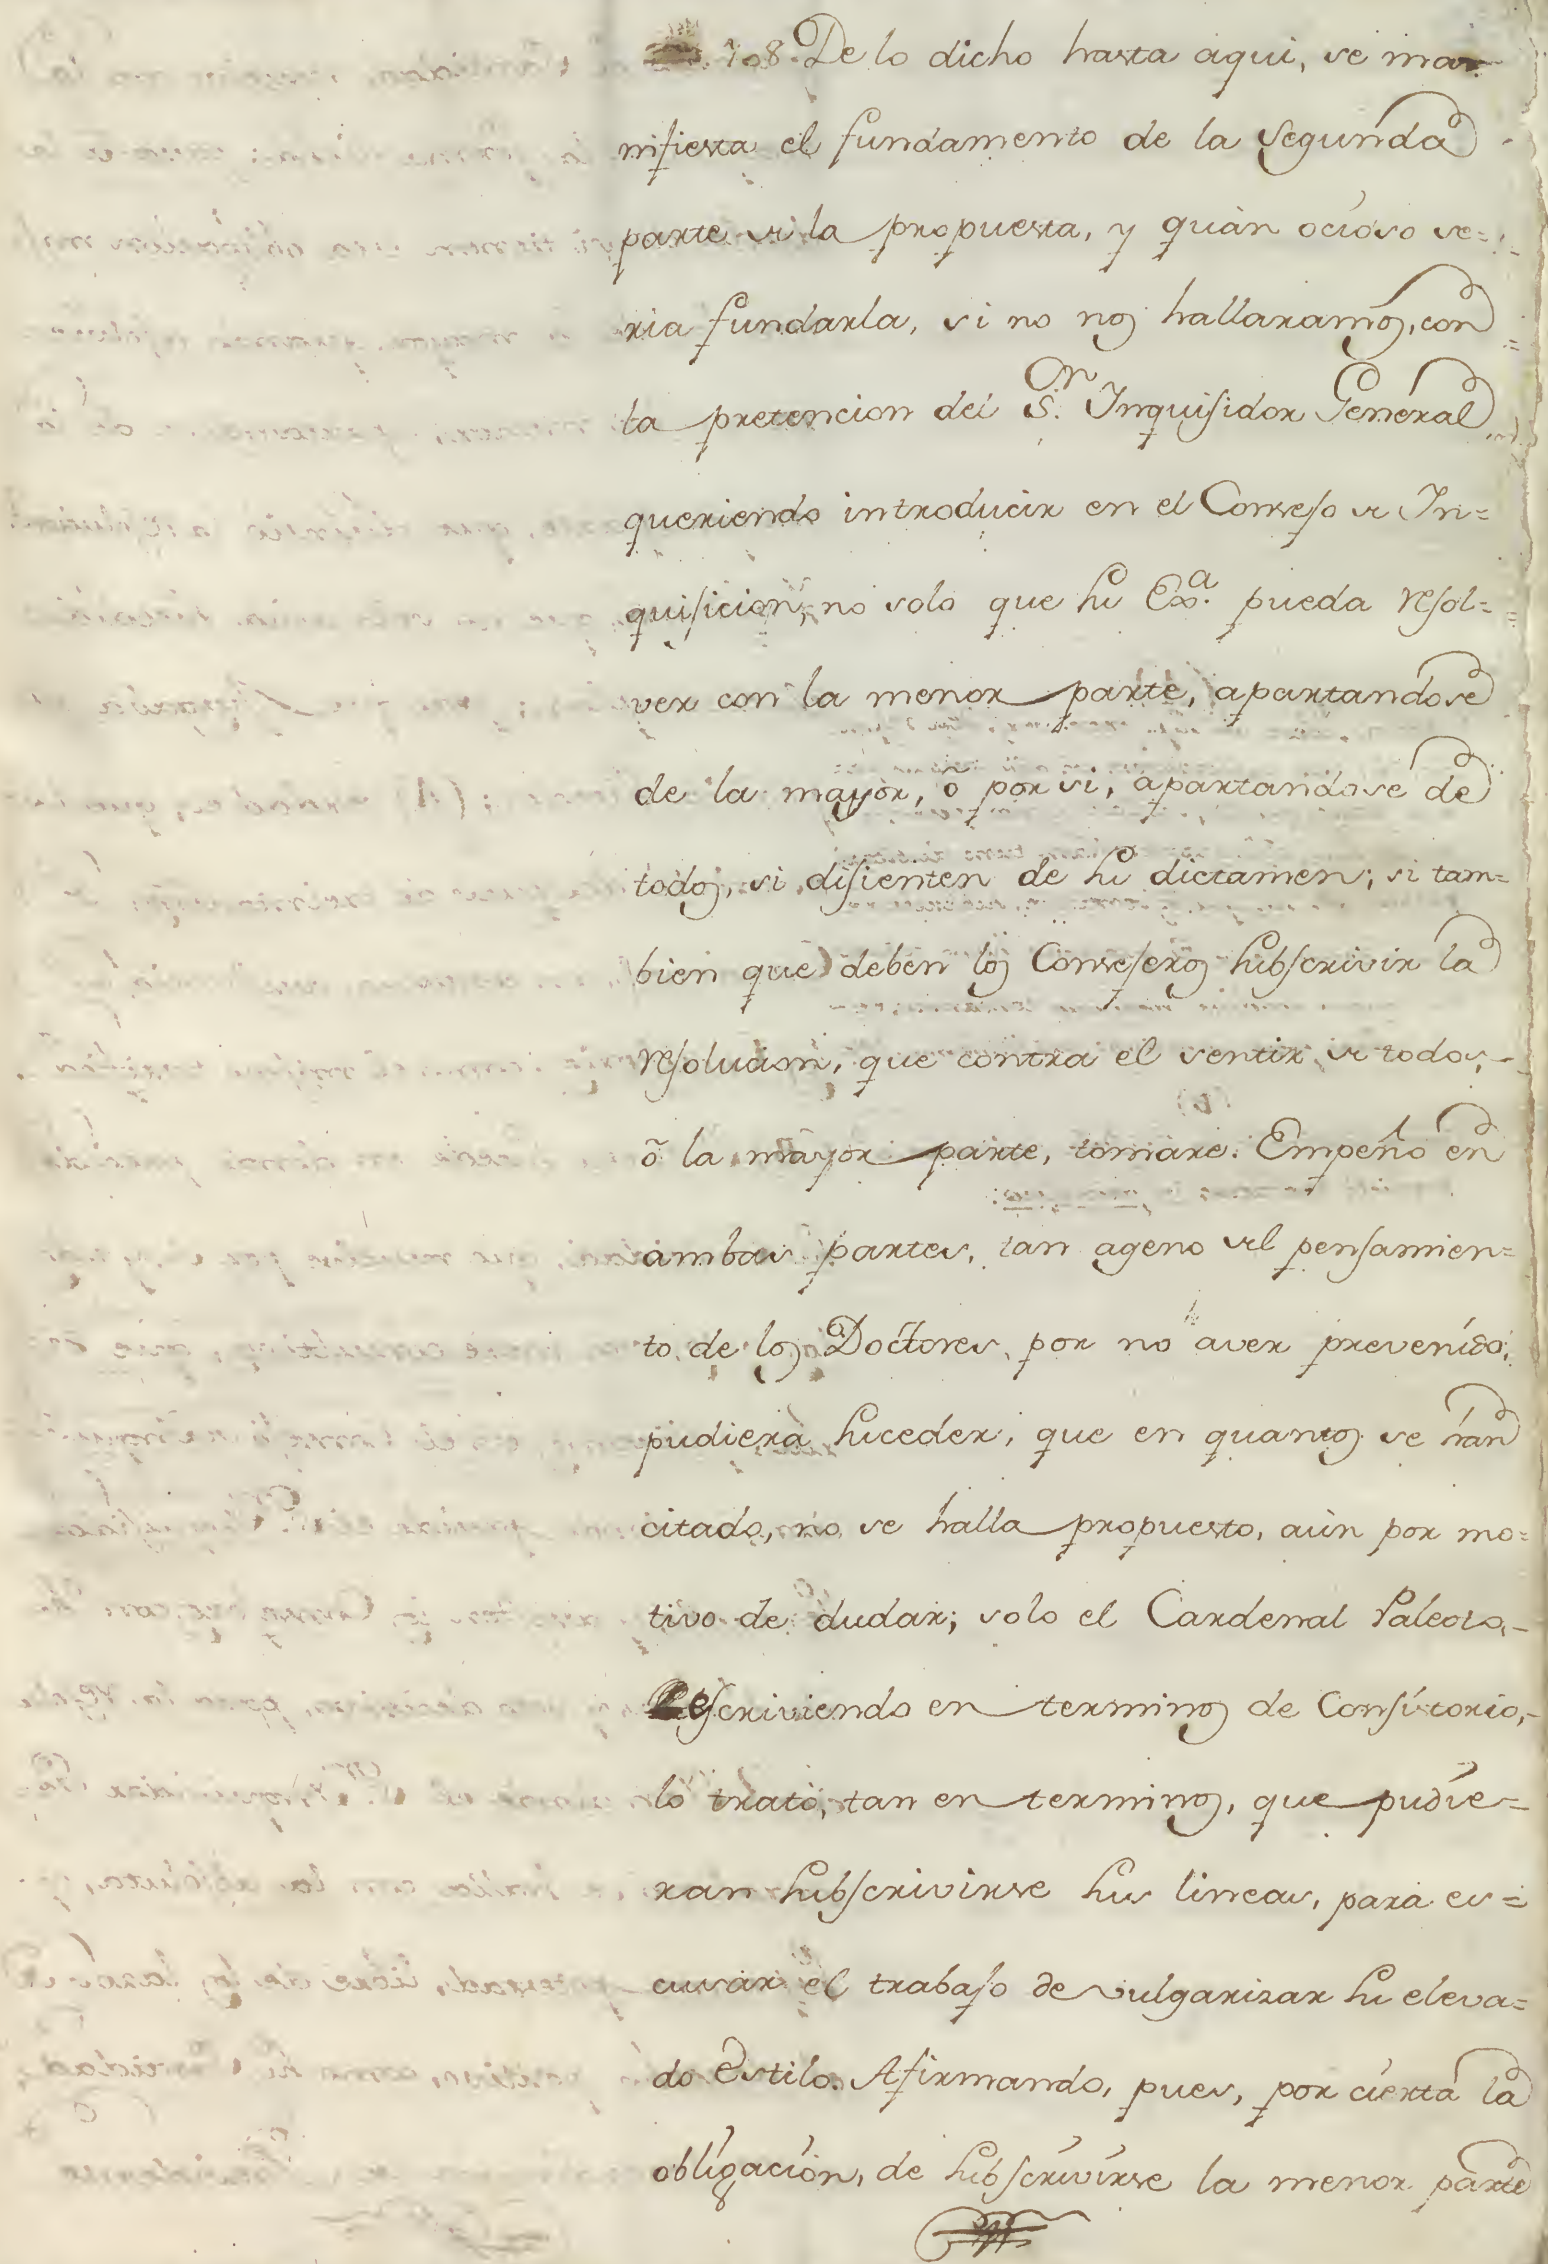 108. De lo dicho hasta aqui, se ma-
nifiesta el fundamento de la Segunda
parte de la propuesta, y quàn ocioso se=
ria fundarla, si no nos hallaramos, con
la pretencion del S.<sup>or</sup> Inquisidor General
queriendo introducir en el Consejo de In=
quisicion, no solo que su Exª. pueda resol=
ver con la menor parte, apartandose
de la mayor, ò por si, apartandose de
todos, si disienten de su dictamen; si tam=
bien que deben los Consejeros subscrivir la
resolucion, que contra el sentir de todos,
ò la mayor parte, tomare. Empeño en
ambas partes, tan ageno del pensamien=
to de los Doctores, por no aver prevenido,
pudiera suceder, que en quantos se han
citado, no se halla propuesto, aùn por mo=
tivo de dudar; solo el Cardenal Paleoto,
escriviendo en terminos de Consistorio,
lo tratò, tan en terminos, que pudie=
ran subscrivirse sus lineas, para es=
cusar el trabajo de vulgarizar su eleva=
do estilo. Afirmando, pues, por cierta la
obligacion, de subscrivirse la menor parte